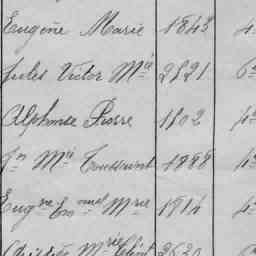 Eugène Marie 1843 4
Jules Victor Mie 2821 6
Alphonse Pierre 1802 4
Jn Mie Toussaint 1888 4
Eugne Emanuel Mrie 1914 4
Mrie 2630